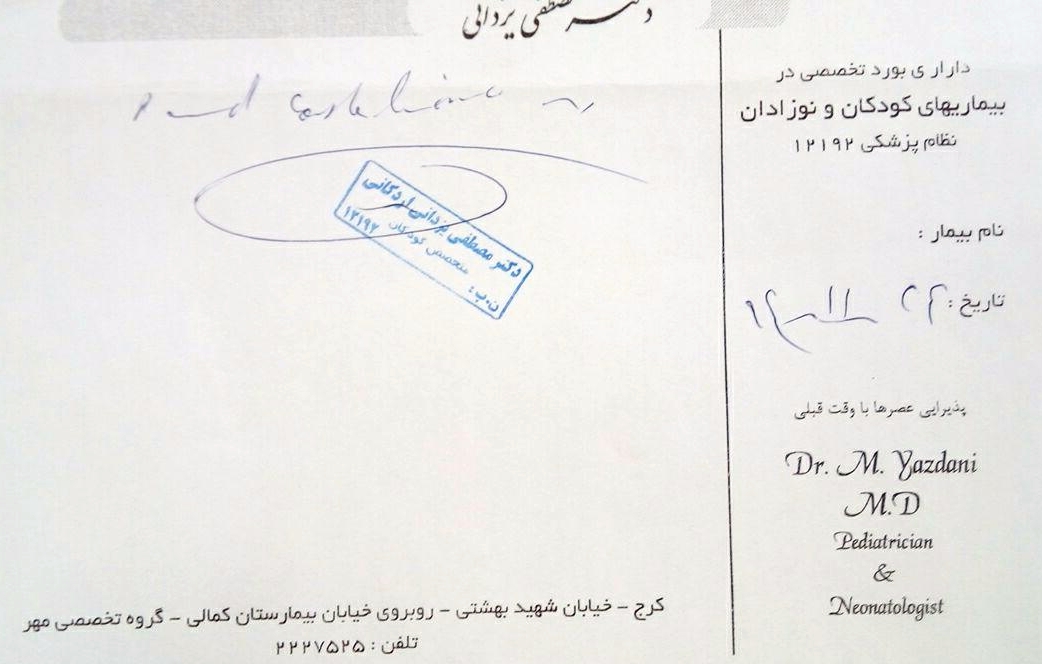 دکتر مصطفی یزدانی
دارا ی بورد تخصصی در
بیماریهای کودکان و نوزادان
نظام پزشکی ۱۲۱۹۲
نام بیمار :
تاریخ :
پذیرایی عصرها با وقت قبلی
Dr. M. Yazdani
M.D
Pediatrician
&
Neonatologist
دکتر مصطفی یزدانی اردکانی
متخصص کودکان
ن.پ: ۱۲۱۹۲
کرج – خیابان شهید بهشتی – روبروی خیابان بیمارستان کمالی – گروه تخصصی مهر
تلفن : ۲۲۲۷۵۲۵